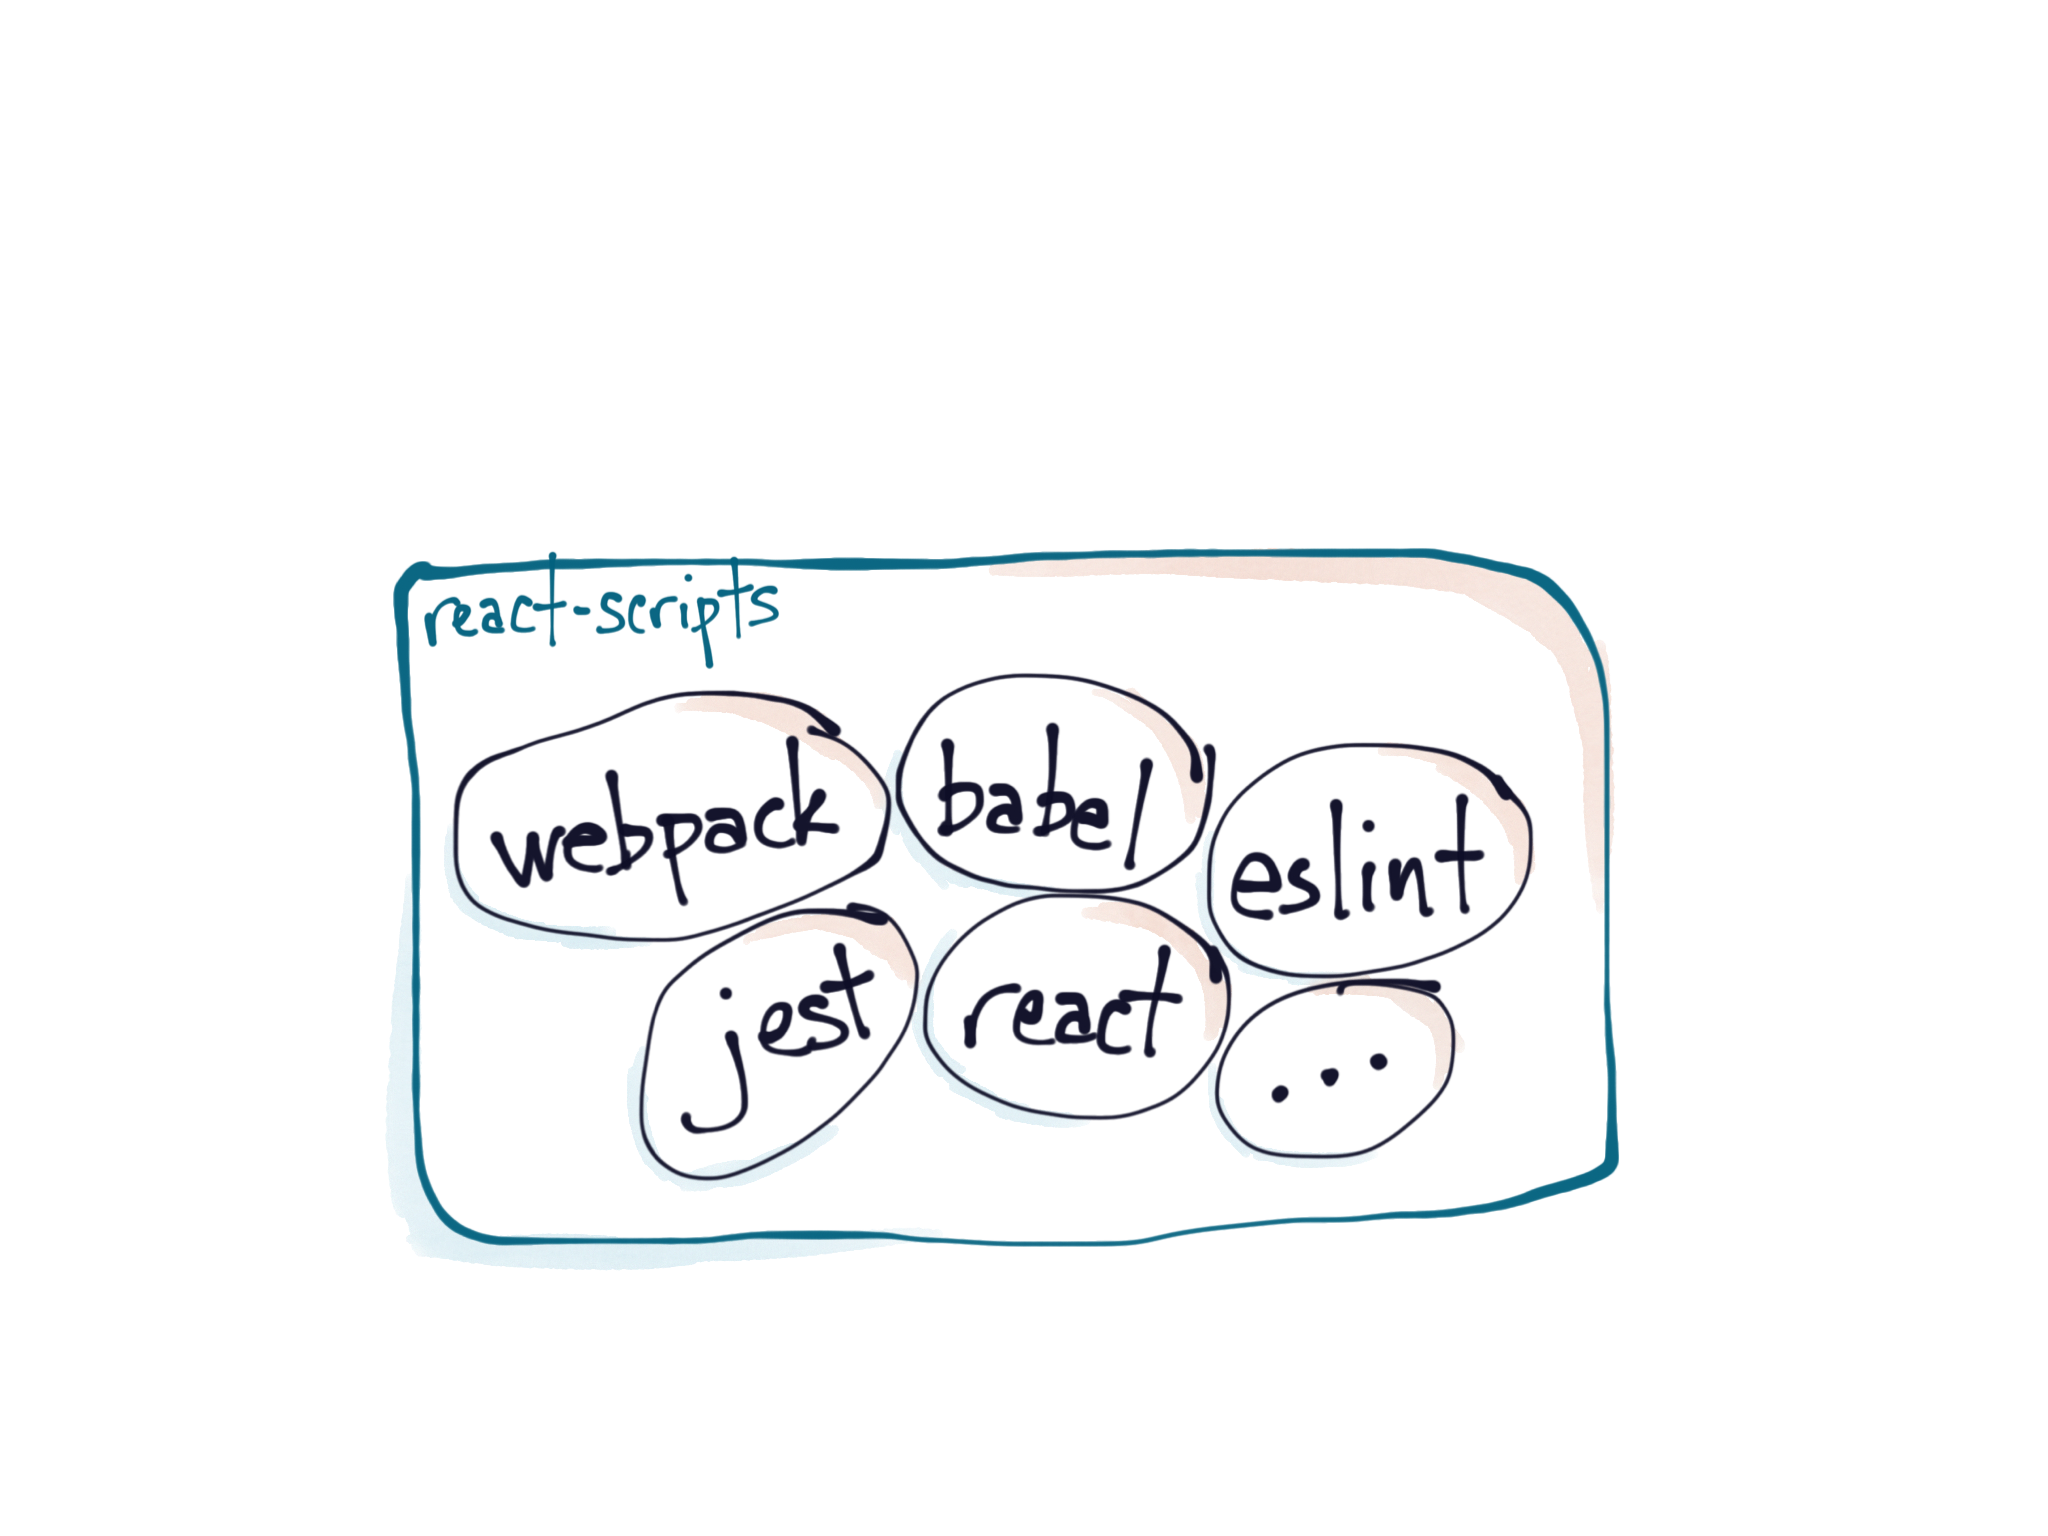 react-scripts
webpack
babel
eslint
jest
react
...